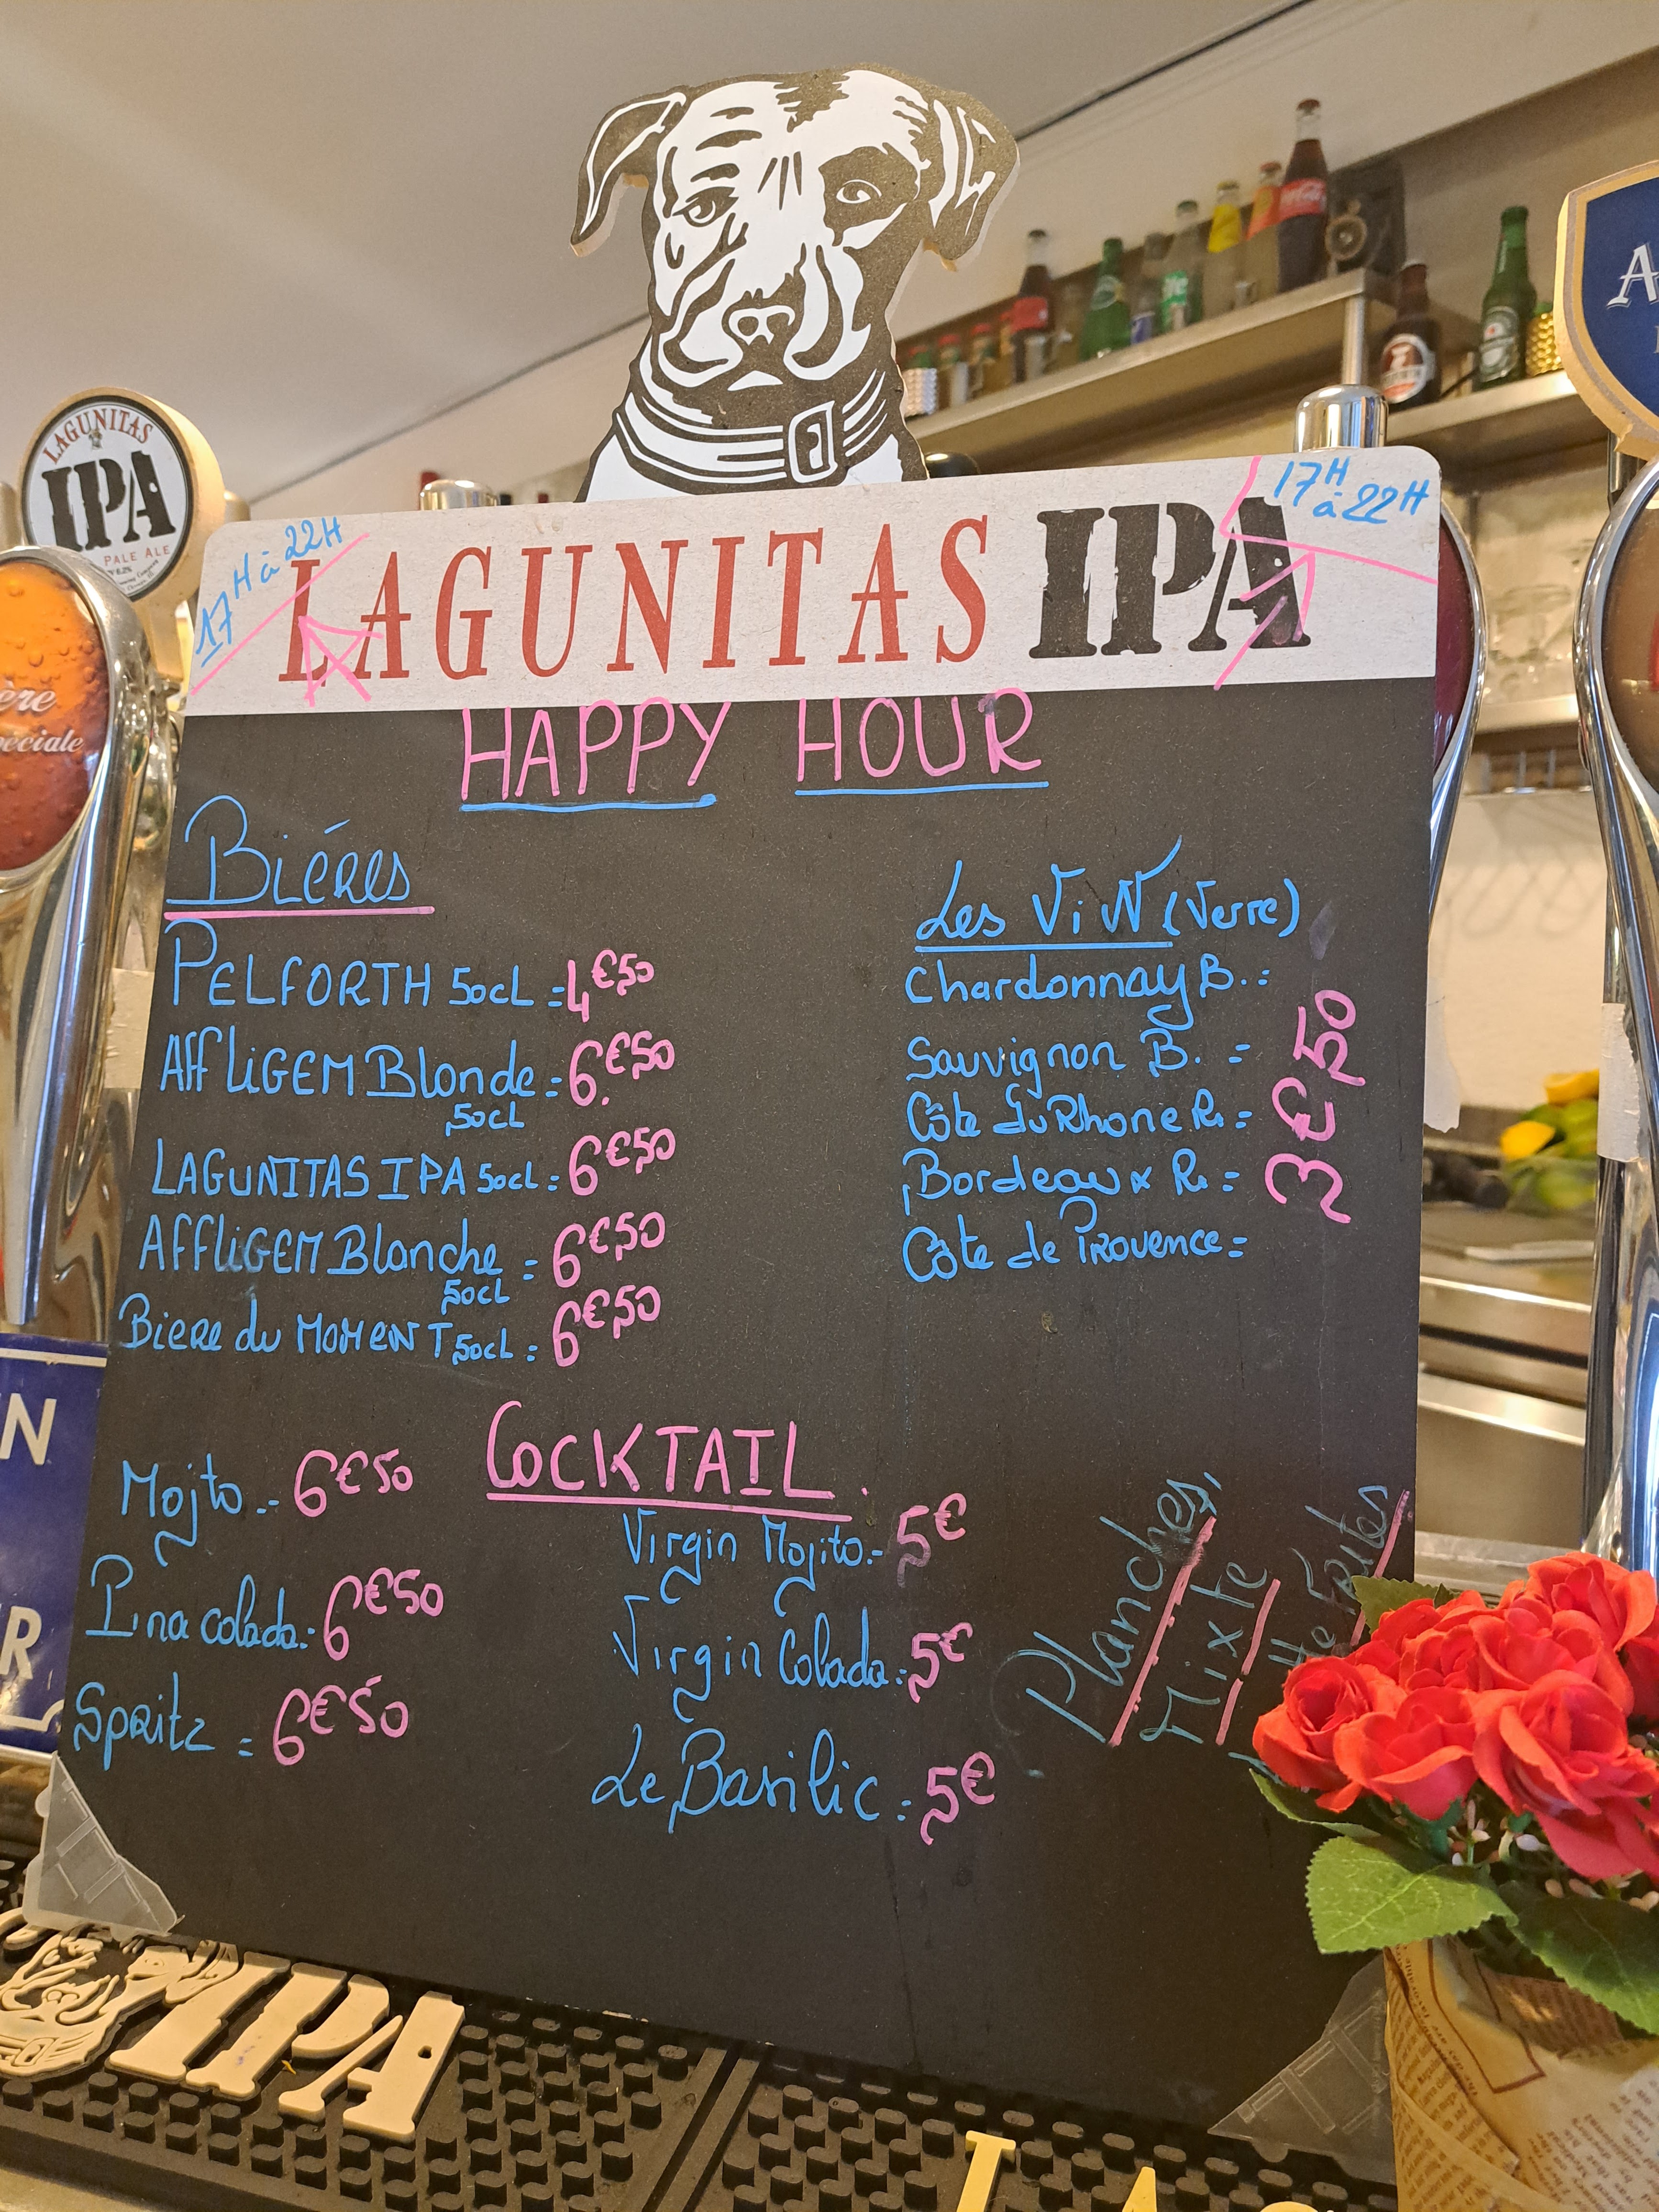 LAGUNITAS
IPA
PALE ALE
17H à 22H
LAGUNITAS IPA
17H
à 22H
HAPPY HOUR
Biéres
PELFORTH 50cL = 4€50
AffLiGEM Blonde = 6€50
50cL
LAGUNITAS IPA 50cL = 6€50
AffLiGEM Blanche = 6€50
50cL
Biere du MOMENT 50cL = 6€50
Les ViN (Verre)
Chardonnay B. =
Sauvignon B. =
Côte du Rhone R. =
Bordeaux R. =
Côte de Provence =
3€50
COCKTAIL
Mojto.- 6€50
Pina colada.- 6€50
Spritz = 6€50
Virgin Mojito.- 5€
Virgin Colada.- 5€
Le Basilic = 5€
Planches
Mixte
Frites
ère
péciale
N
R
IPA
Coca-Cola
A